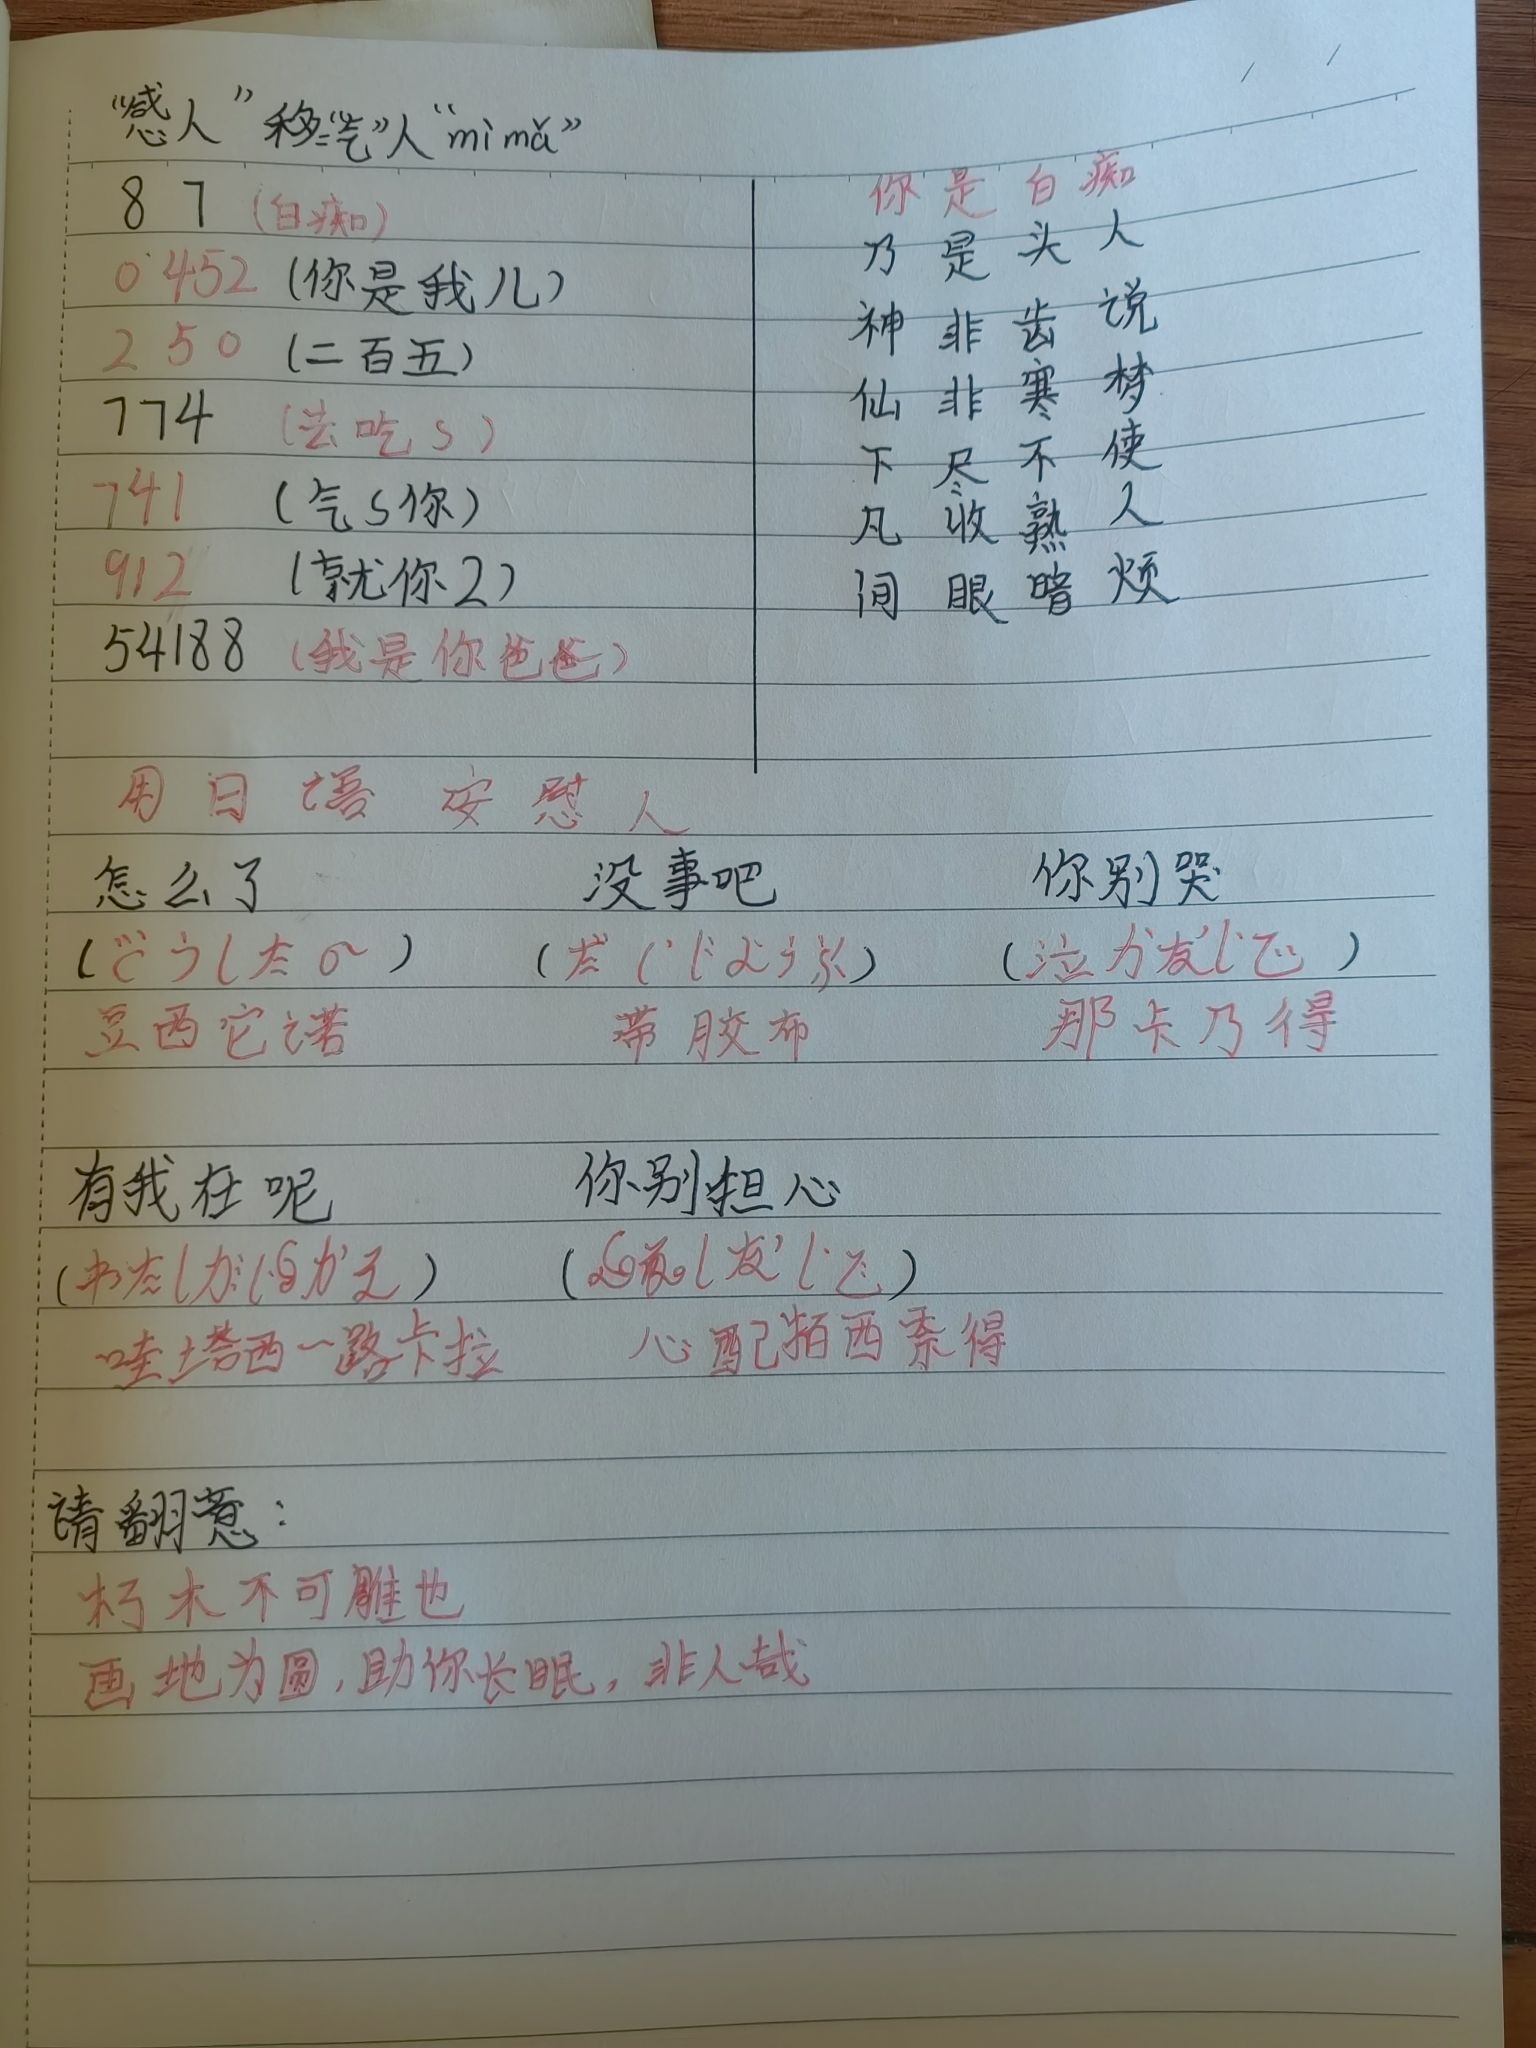 “感人”移“气”人“mì mǎ”
87 (白痴)
0452 (你是我儿)
250 (二百五)
774 (去吃S)
741 (气S你)
912 (就你2)
54188 (我是你爸爸)
你是白痴
乃是头人
神非齿说
仙非寒梦
下尽不使
凡收熟人
间眼暗烦
用日语安慰人
怎么了 没事吧 你别哭
(どうしたの) (だいじょうぶ)
豆西它诺 带胶布 那卡乃得
有我在呢 你别担心
哇塔西一路卡拉 心配掐西柰得
请翻意:
朽木不可雕也
画地为圆,助你长眠,非人哉